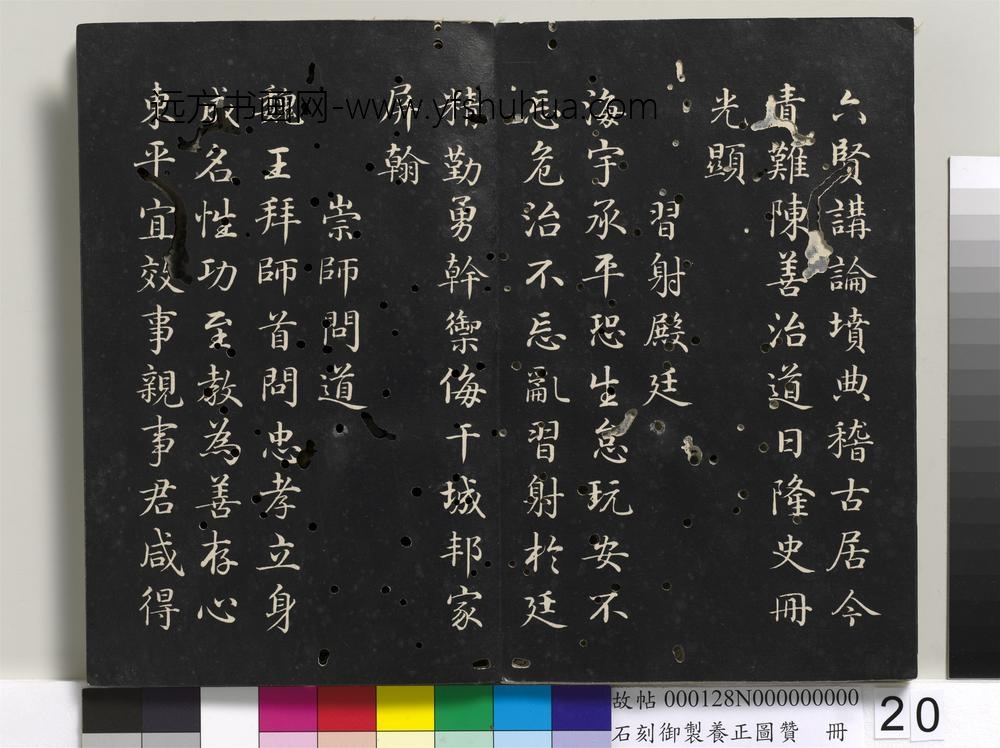 六賢講論墳典稽古居今
責難陳善治道日隆史冊
光顯
習射殿廷
海宇承平恐生怠玩安不
忘危治不忘亂習射於廷
精勤勇幹禦侮干城邦家
屏翰
崇師問道
魏王拜師首問忠孝立身
成名性功至教為善存心
東平宜效事親事君咸得
远方书画网-www.yfshuhua.com
故帖 000128N000000000
石刻御製養正圖贊 冊
20